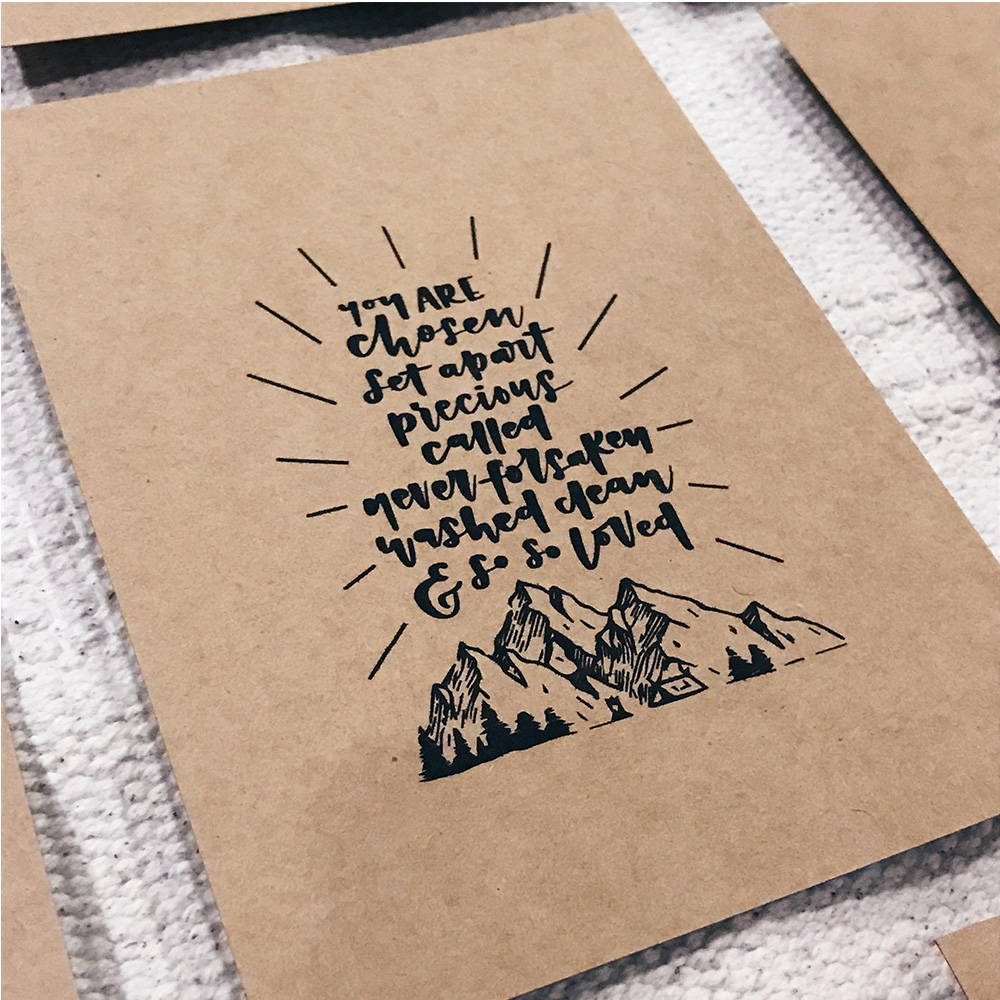 you ARE
chosen
set apart
precious
called
never forsaken
washed clean
& so so loved